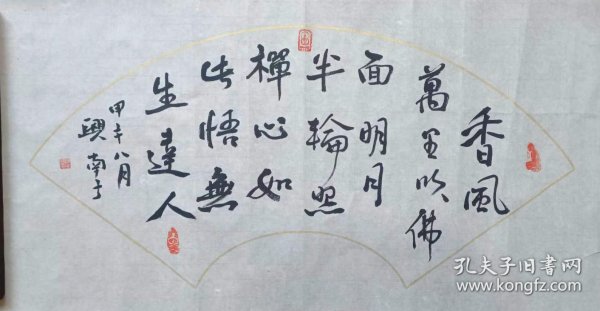 香風
萬里吹佛
面明月
半輪照
禪心如
此悟無
生達人
甲午八月
興南
孔夫子旧书网
www.kongfz.com